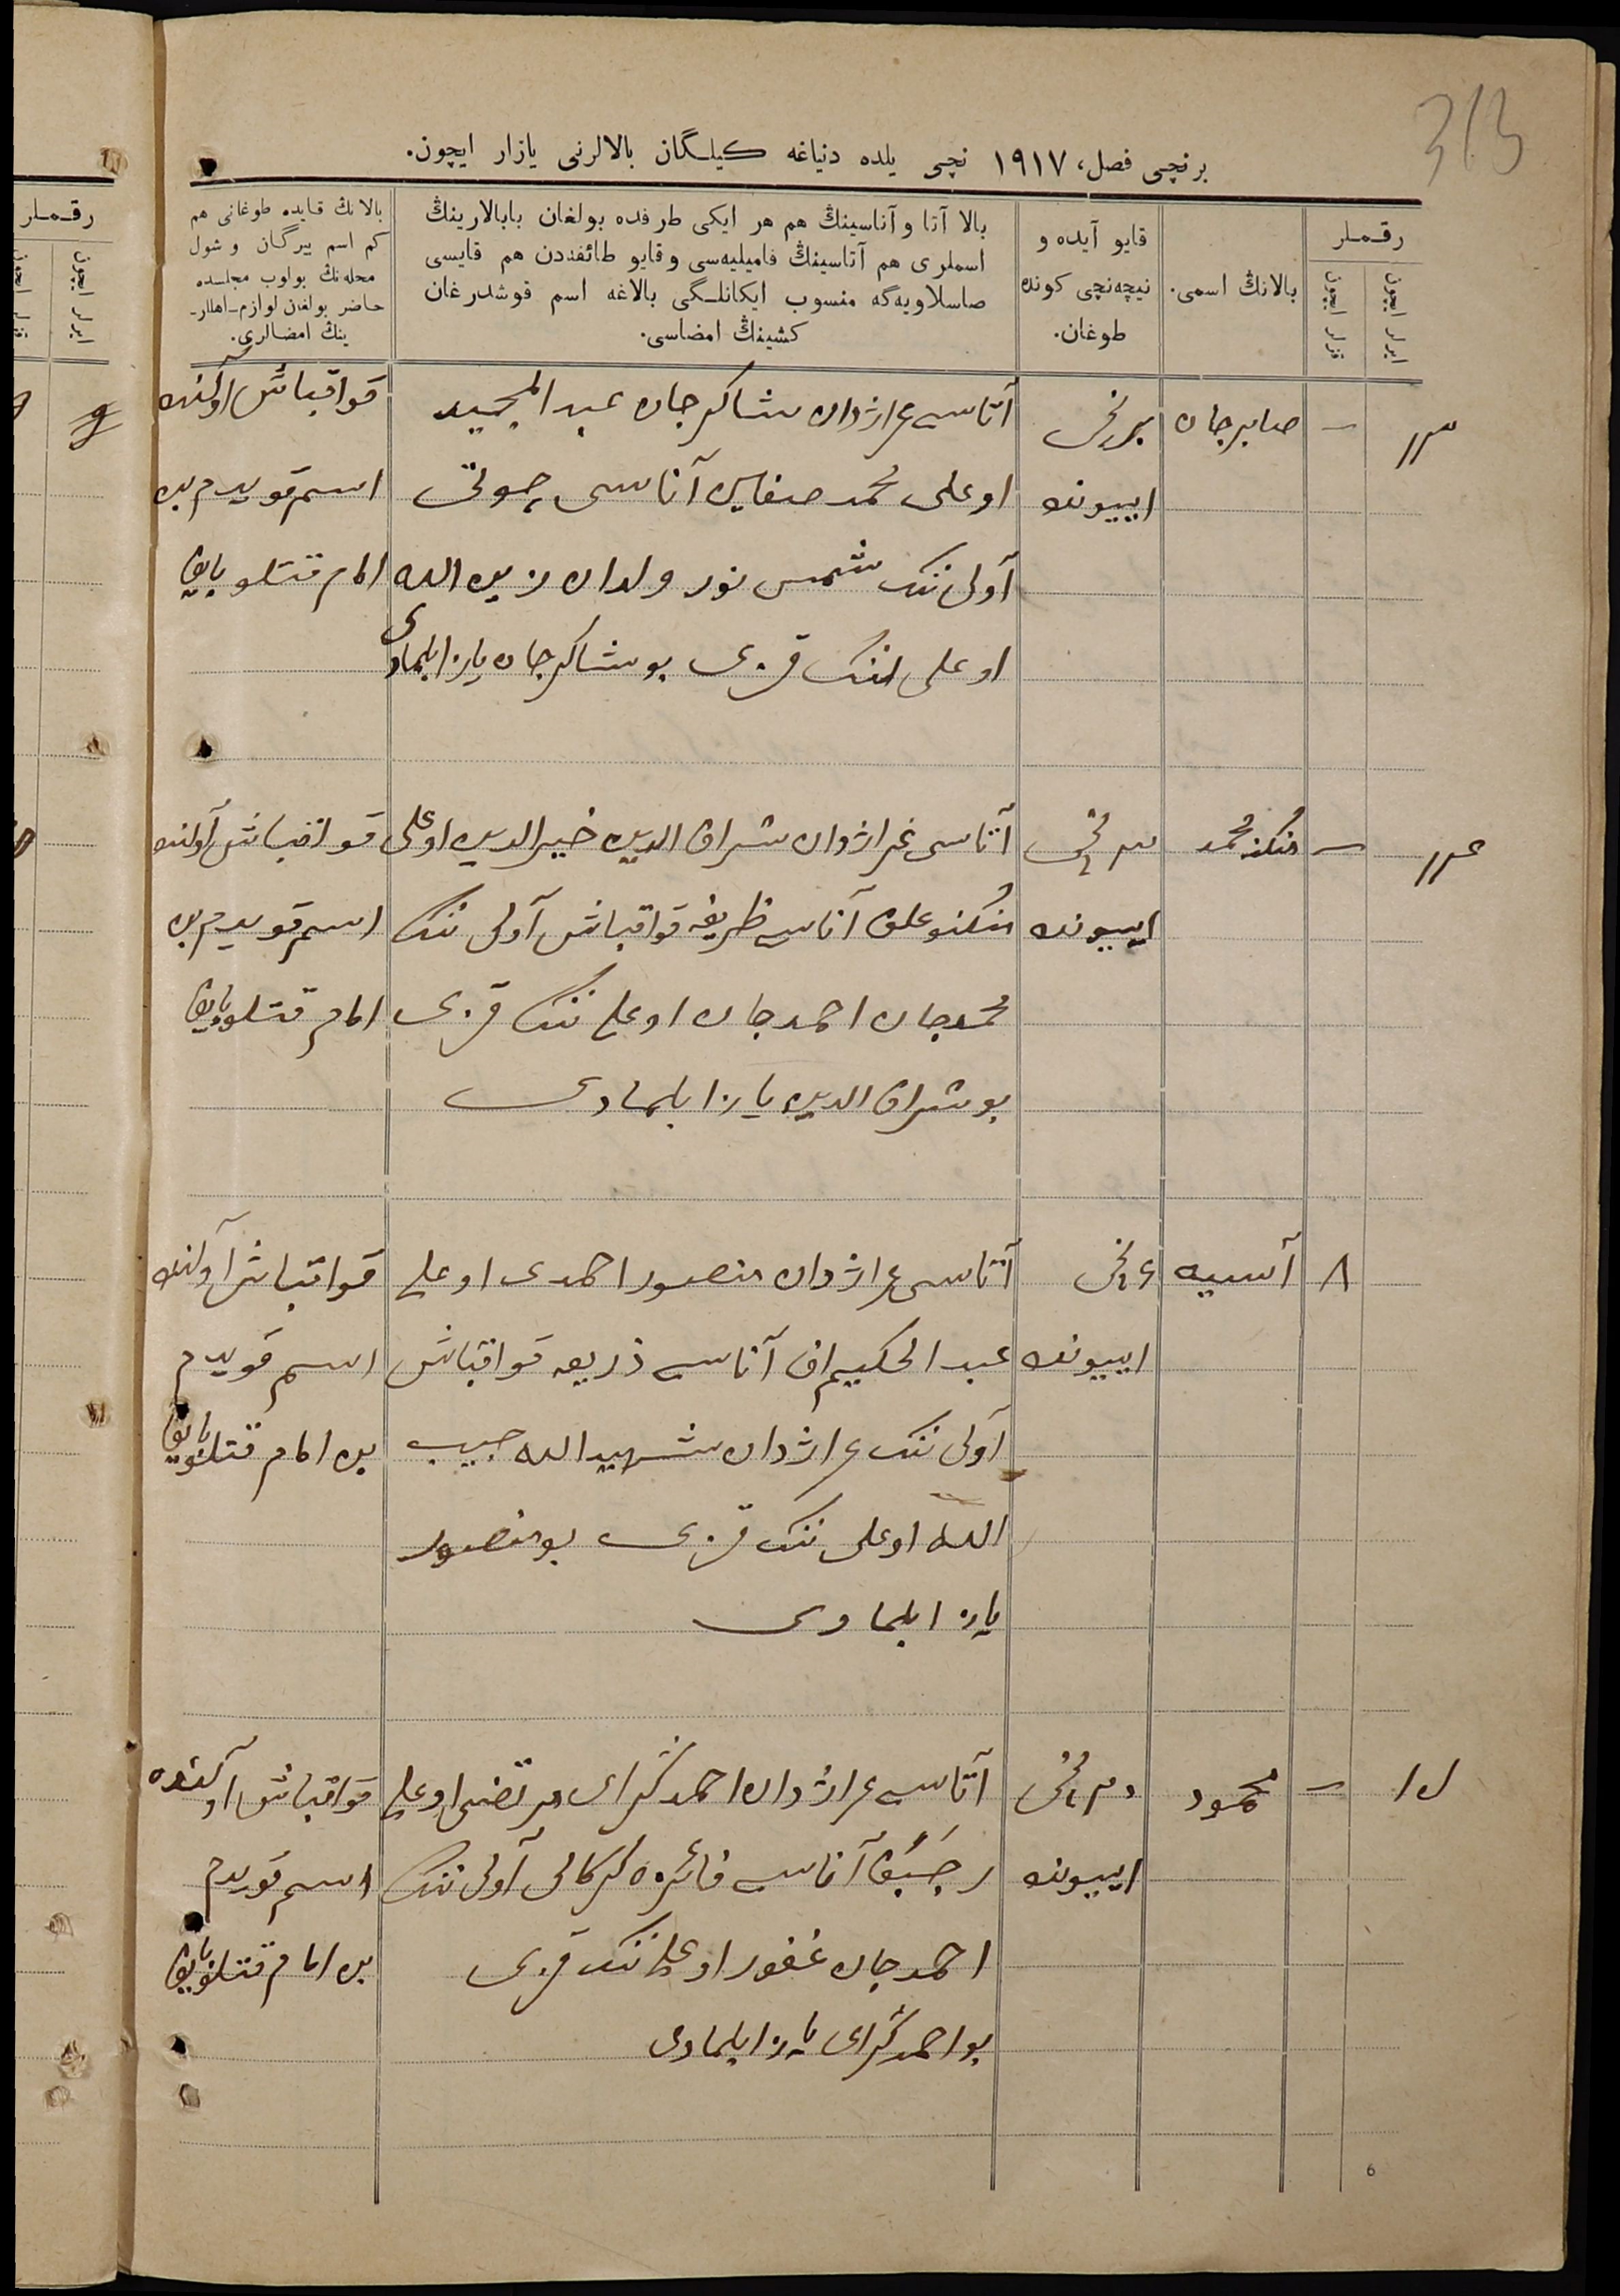 313
برنچی فصل، ١٩١٧ نچی یلده دنیاغه كیلـگان بالالرنی یازار ایچون.
رقـملر
ایرلر ایچون
قزلر ایچون
بالانڭ اسمی.
قایو آیده و
نیچه‌نچی كونده
طوغان.
بالا آتا و آناسینڭ هم هر ایكی طرفده بولغان بابالارینڭ
اسملری هم آتاسینڭ فامیلیه‌سی و قایو طائفه‌دن هم قایسی
صاسلاویه‌گه منسوب ایكانلـگی بالاغه اسم قوشدرغان
كشینڭ امضاسی.
بالانڭ قایده طوغانی هم
كم اسم بیرگان و شول
محله‌نڭ بولوب مجلسده
حاضر بولغان لوازم-اهللر-
ینڭ امضالری.
١٣
–
صابرجان
برنخی
ایییونده
آتاسی غراژدان شاكرجان عبد المجید
اوغلی محمد صفایین آناسی
آولی ننك شمس نور ولدان زین الله
اوغلی ننك قزی بو شاكرجان یازا بلمادی
قواقباش آولنده
اسم قویدم من
امام قتلوبایف
١٤
–
منكنه محمد
٣ نخی
ایییونده
آتاسی غراژدان شراف الدین خیر الدین اوغلی
آناسی ظریفه قواقباش آولی ننك
محمدجان احمدجان اوغلی ننك قزی
بو شراف الدین یازا بلمادی
قواقباش آولنده
اسم قویدم من
امام قتلوبایف
٨
آسیه
٤ نخی
ایییونده
آتاسی غراژدان منصور احمدی اوغلی
عبد الحكیم اف آناسی ذریعه قواقباش
آولی ننك غراژدان شهید الله حبیب
الله اوغلی ننك قزی بو منصور
یازا بلمادی
قواقباش آولنده
اسم قویدم
من امام قتلوبایف
١٥
–
محمود
ایییونده
آتاسی غراژدان احمد گرای مرتضی اوغلی
رجبف آناسی فائزه كركالی آولی ننك
احمدجان غفور اوغلی ننك قزی
بو احمد گرای یازا بلمادی
قواقباش آولنده
اسم قویدم
من امام قتلوبایف
6